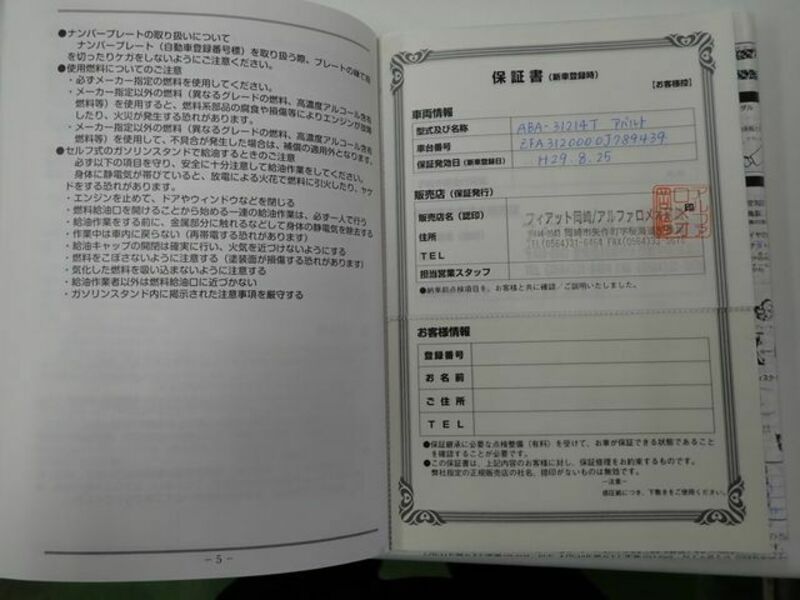 ●ナンバープレートの取り扱いについて
ナンバープレート（自動車登録番号標）を取り扱う際、プレートの縁で指
を切ったりケガをしないようにご注意ください。
●使用燃料についてのご注意
・必ずメーカー指定の燃料を使用してください。
・メーカー指定以外の燃料（異なるグレードの燃料、高濃度アルコール含有
燃料等）を使用すると、燃料系部品の腐食や損傷等によりエンジンが故障
したり、火災が発生する恐れがあります。
・メーカー指定以外の燃料（異なるグレードの燃料、高濃度アルコール含有
燃料等）を使用して、不具合が発生した場合は、補償の適用外となります。
●セルフ式のガソリンスタンドで給油するときのご注意
必ず以下の項目を守り、安全に十分注意して給油作業をしてください。
身体に静電気が帯びていると、放電による火花で燃料に引火したり、ヤケ
ドをする恐れがあります。
・エンジンを止めて、ドアやウィンドウなどを閉じる
・燃料給油口を開けることから始める一連の給油作業は、必ず一人で行う
・給油作業をする前に、金属部分に触れるなどして身体の静電気を除去する
・作業中は車内に戻らない（再帯電する恐れがあります）
・給油キャップの開閉は確実に行い、火気を近づけないようにする
・燃料をこぼさないように注意する（塗装面が損傷する恐れがあります）
・気化した燃料を吸い込まないように注意する
・給油作業者以外は燃料給油口に近づかない
・ガソリンスタンド内に掲示された注意事項を厳守する
－5－
保証書（新車登録時）
【お客様控】
車両情報
型式及び名称 ABA-31214T アバルト
車台番号 ZFA3120000J789439
保証発効日（新車登録日） H29.8.25
販売店（保証発行）
販売店名（認印） フィアット岡崎/アルファロメオ岡崎 印
住所 岡崎市矢作町字桜海道
TEL TEL(0564)31-6464 FAX(0564)33-3616
担当営業スタッフ
●納車前点検項目を、お客様と共に確認／ご説明いたしました。
お客様情報
登録番号
お名前
ご住所
TEL
●保証継承に必要な点検整備（有料）を受けて、お車が保証できる状態であること
を確認することが必要です。
●この保証書は、上記内容のお客様に対し、保証修理をお約束するものです。
弊社指定の正規販売店の社名、捺印がないものは無効です。
－注意－
感圧紙につき、下敷きをご使用ください。